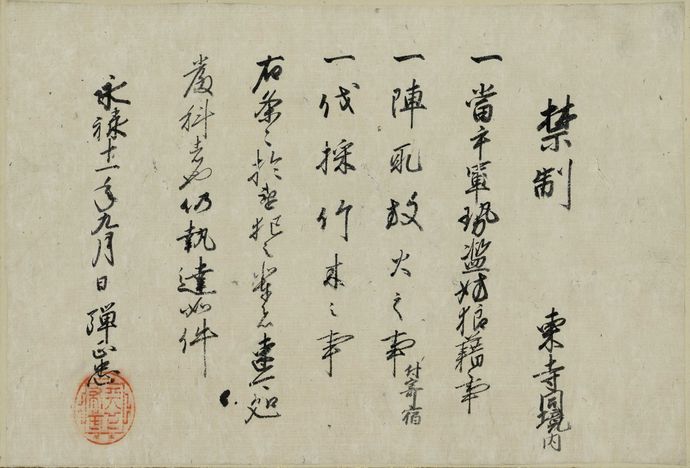 禁制 東寺同境内
一当手軍勢濫妨狼藉事
一陣取放火之事付寄宿
一伐採竹木之事
右条々於違犯之輩者速可処
厳科者也仍執達如件
永禄十一年九月日弾正忠